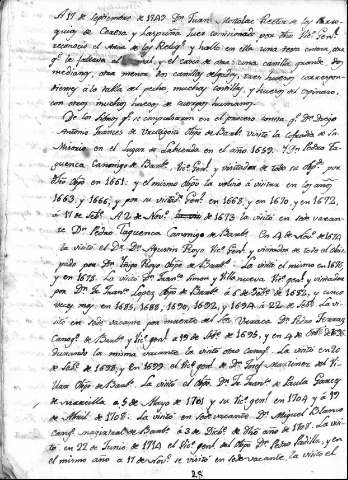 A 17 de Septiembre de 1749 Dn. Juan Mostalac Retor de las Parro-
quias de Castro y Laspuña Juez comisionado por dho Vic.º Gen.l
reconoció el de las Reliq.s y halló en ella una testa entera, que
q.e le faltava al y el casco de otra cana canilla grande, dos
medianas, otra menor dos canillas delgadas, tres huesos correspon-
dientes a la tabla del pecho, muchas costillas, y huesos del espinazo,
con otros muchos huesos de cuerpos humanos.
De los libros q.e se compulsaron en el processo consta q.e Dn. Diego
Antonio Frances de Urrutigoyti Obpo de Barb.o visitó la Cofradia de la
Misericª en el lugar de Labuerda en el año 1659. Y Dn. Pedro Ta-
guenca Canonigo de Barb.o Vic.º Gen.l y visitador de todo su Obp.do por
dho Obpo en 1661: y el mismo Obpo la volvió a visitar en los años
1663, y 1666, y por su visitad.r Gen.l en 1668, y en 1670, y en 1672,
à 17 de Set.e A 2 de Nov.e de 1673 la visitó en sede vacan-
te Dn. Pedro Taguenca Canonigo de Barb.o En 4 de Nov.e de 1674
la visitó el Dr. Dn. Agustin Royo Vic.º Gen.l y visitador de todo el Obis-
pado por Dn. Iñigo Royo Obpo de Barb.o La visitó el mismo en 1676,
y en 1678. La visitó Dn. Fran.co Simon y Villanueva Vic.º gen.l y visitador
por Dn. Fr. Fran.co Lopez Obpo de Barb.o à 6 de Set.e de 1682, y cinco
veces mas en 1685, 1688, 1690, 1692, y 1694 à 22 de Set.e La vi-
sitó en sede vacante por muerte del Sr. Urraca Dn. Pedro Ferraz
Canog.o de Barb.o y Vic.º gen.l a 19 de Set.e de 1695, y en 4 de Oct.e de 1696
durando la misma vacante la visitó otro canog.o La visitó en 20
de Set.e de 1698, y en 1699 el Vic.º gen.l de Dn. Josef Martinez del Vi-
llar Obpo de Barb.o La visitó el Obpo Dn. Fr. Fran.co de Paula Garcez
de Marcilla a 5 de Mayo de 1701 y su Vic.º gen.l en 1704 y à 19
de Abril de 1708. La visitó en sede vacante Dn. Miguel Blanco
Canog.o magistral de Barb.o à 3 de Dicb.e de dho año de 1708. La visi-
tó en 22 de Junio de 1714 el Vic.º gen.l del Obpo Dn. Pedro Padilla, y en
el mismo año a 17 de Nov.e se visitó en sede vacante, la visitó el
28